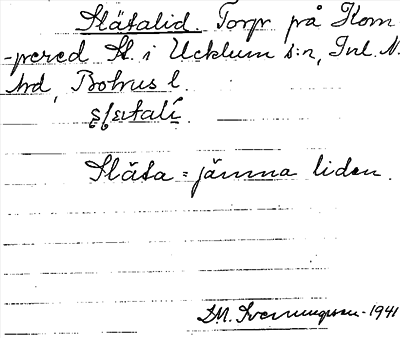 Slätalid. Torp på Kom
-pered St. i Ucklum s:n, Inl. N.
hrd, Bohus l.
Släta = jämna liden.
D.M. Svenningsson - 1941